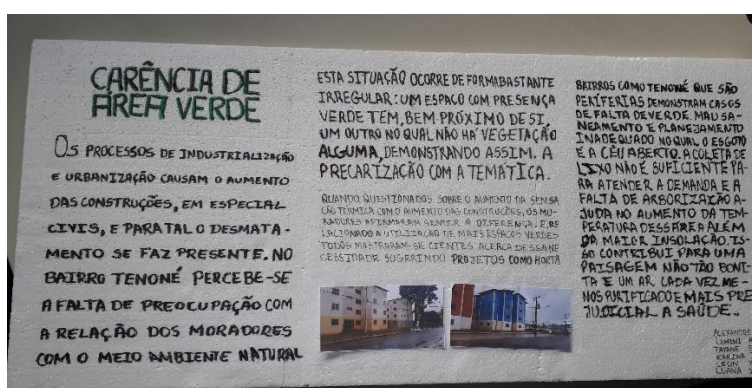 CARÊNCIA DE
ÁREA VERDE
OS PROCESSOS DE INDUSTRIALIZAÇÃO
E URBANIZAÇÃO CAUSAM O AUMENTO
DAS CONSTRUÇÕES, EM ESPECIAL
CIVIS, E PARA TAL O DESMATA-
MENTO SE FAZ PRESENTE. NO
BAIRRO TENONÉ PERCEBE-SE
A FALTA DE PREOCUPAÇÃO COM
A RELAÇÃO DOS MORADORES
COM O MEIO AMBIENTE NATURAL
ESTA SITUAÇÃO OCORRE DE FORMA BASTANTE
IRREGULAR: UM ESPAÇO COM PRESENÇA
VERDE TEM, BEM PRÓXIMO DE SI,
UM OUTRO NO QUAL NÃO HÁ VEGETAÇÃO
ALGUMA, DEMONSTRANDO ASSIM. A
PRECARIZAÇÃO COM A TEMÁTICA.
QUANDO QUESTIONADOS SOBRE O AUMENTO DA SENSA
ÇÃO TÉRMICA COM O AUMENTO DAS CONSTRUÇÕES, OS MO-
RADORES AFIRMARAM SENTIR A DIFERENÇA. E, RE
LACIONADO A UTILIZAÇÃO DE MAIS ESPAÇOS VERDES
TODOS MOSTRARAM-SE CIENTES ACERCA DESSA NE
CESSIDADE SUGERINDO PROJETOS COMO HORTA
BAIRROS COMO TENONÉ QUE SÃO
PERIFERIAS DEMONSTRAM CASOS
DE FALTA DE VERDE. MAU SA-
NEAMENTO E PLANEJAMENTO
INADEQUADO NO QUAL O ESGOTO
E A CÉU ABERTO. A COLETA DE
LIXO NÃO É SUFICIENTE PA-
RA ATENDER A DEMANDA E A
FALTA DE ARBORIZAÇÃO A-
JUDA NO AUMENTO DA TEM-
PERATURA DESSA ÁREA ALÉM
DA MAIOR INSOLAÇÃO. IS-
SO CONTRIBUI PARA UMA
PAISAGEM NÃO TÃO BONI-
TA E UM AR CADA VEZ ME-
NOS PURIFICADO E MAIS PRE
JUDICIAL A SAÚDE..
ALEXANDRE
TAYANE
KARINA
LUANA